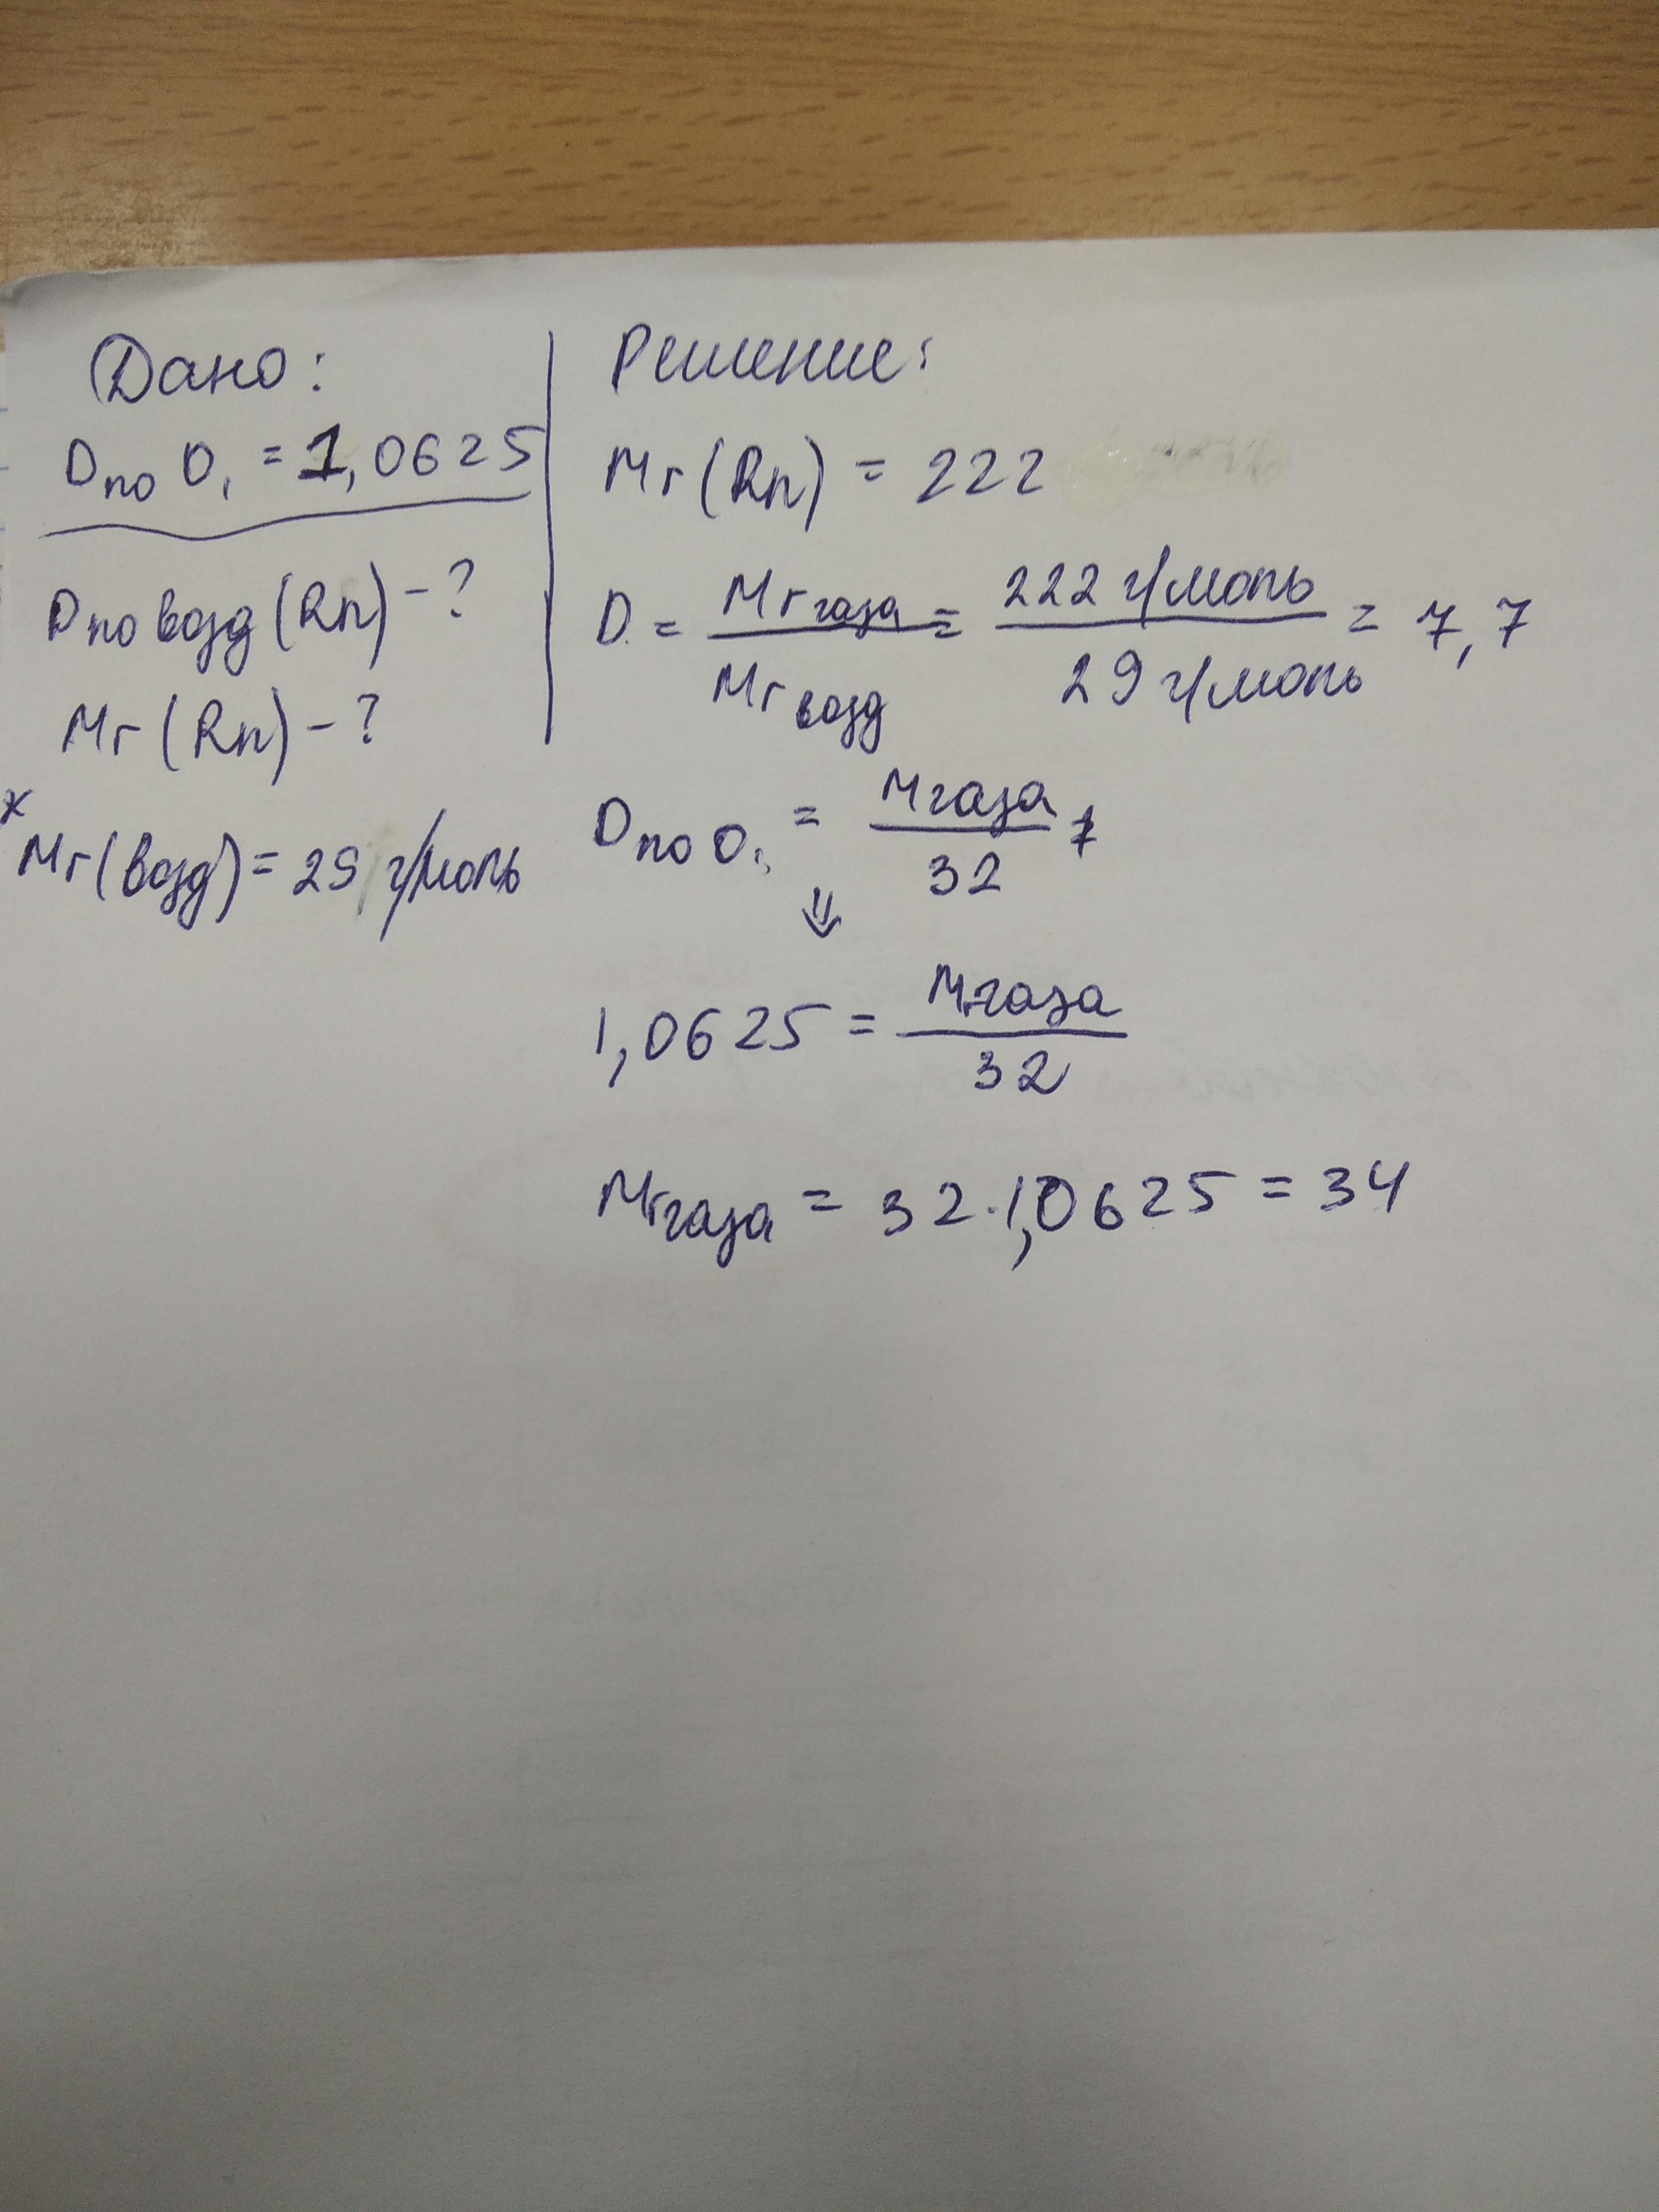 Дано:
Dпо O₂ = 1,0625
Dпо возд (Rn) - ?
Mr (Rn) - ?
*Mr (возд) = 29 г/моль
Решение:
Mr (Rn) = 222
D = Mr газа / Mr возд = 222 г/моль / 29 г/моль = 7,7
Dпо O₂ = M газа / 32
⇓
1,0625 = Mr газа / 32
Mr газа = 32 · 1,0625 = 34